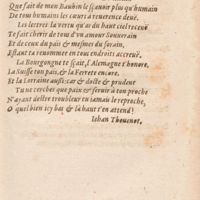 Que fait de mon Bauhin le sçauoir plus qu'humain
De tous humains les cœurs a reuerence deue.
Les lettres la vertu qu'as du haut ciel receue
Te fait cherir de tous d'vn amour Souuerain
Et de ceux du païs & mesmes du forain,
Estant ta renommee en tous endroits accreuë.
La Bourgongne te sçait, l'Alemagne t'honore,
La Suisse ton païs, & la Ferrete encore,
Et la Lorraine aussi: car & docte & prudent
Tu ne cerches que paix & seruir à ton proche
N'ayant desire troubleur en iamais le reproche,
O quel bien icy bas & là haut t'en attend!
Iehan Thouenot.